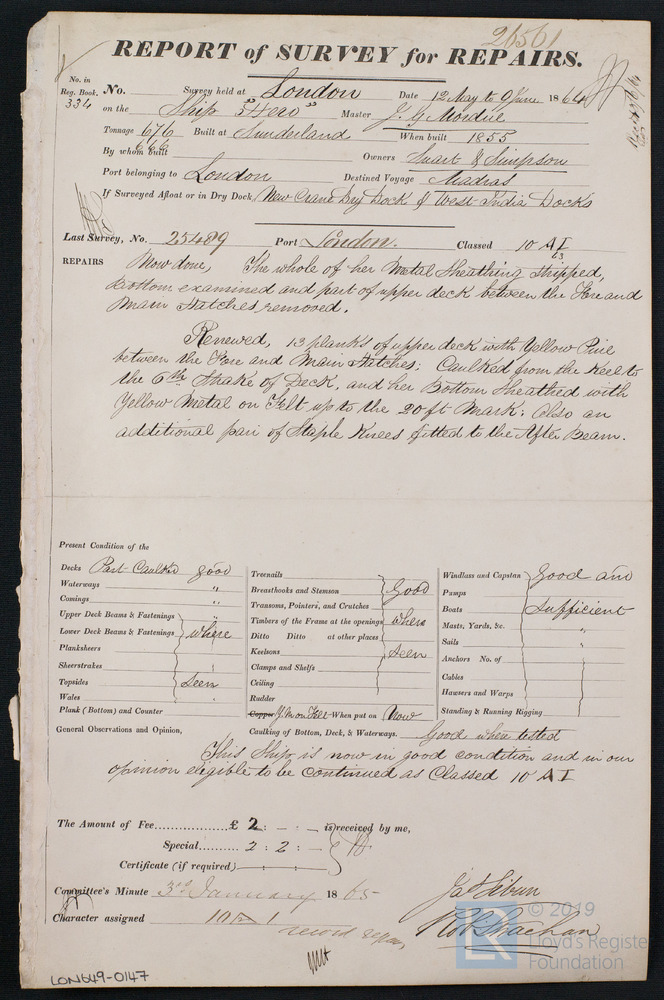 26561
REPORT of SURVEY for REPAIRS.
No. in
Reg. Book. No. Survey held at London Date 12 May to 9 June 1864
334 on the Ship "Hero" Master J. G. Mordue
Tonnage 676 Built at Sunderland When built 1855
By whom built Owners Stuart & Simpson
Port belonging to London Destined Voyage Madras
If Surveyed Afloat or in Dry Dock, New Crane Dry Dock & West India Docks
Last Survey, No. 25489 Port London. Classed 10 A I
63
REPAIRS Now done, The whole of her Metal Sheathing stripped,
bottom examined and part of upper deck between the Fore and
Main Hatches removed.
Renewed, 13 planks of upper deck with Yellow Pine
between the Fore and Main Hatches: Caulked from the Keel to
the 6th Strake of Deck, and her Bottom Sheathed with
Yellow Metal on Felt up to the 20 ft Mark; also an
additional pair of Staple Knees fitted to the After Beam.
Present Condition of the
Decks Part Caulked good
Waterways "
Comings "
Upper Deck Beams & Fastenings "
Lower Deck Beams & Fastenings where
Planksheers
Sheerstrakes
Topsides seen
Wales
Plank (Bottom) and Counter
Treenails
Breasthooks and Stemson Good
Transoms, Pointers, and Crutches
Timbers of the Frame at the openings where
Ditto Ditto at other places
Keelsons seen
Clamps and Shelfs
Ceiling
Rudder
Copper Y.M on Felt When put on Now
Windlass and Capstan Good and
Pumps
Boats Sufficient
Masts, Yards, &c. "
Sails
Anchors No. of "
Cables
Hawsers and Warps "
Standing & Running Rigging
General Observations and Opinion, Caulking of Bottom, Deck, & Waterways. Good where tested
This Ship is now in good condition and in our
opinion eligible to be continued as Classed 10 A I
The Amount of Fee £ 2 : - : - is received by me,
Special 2 : 2 : -
Certificate (if required)
Committee's Minute 3rd January 1865
Character assigned 10 A 1
© 2019
LR Lloyd's Register
Foundation
LON649-0147